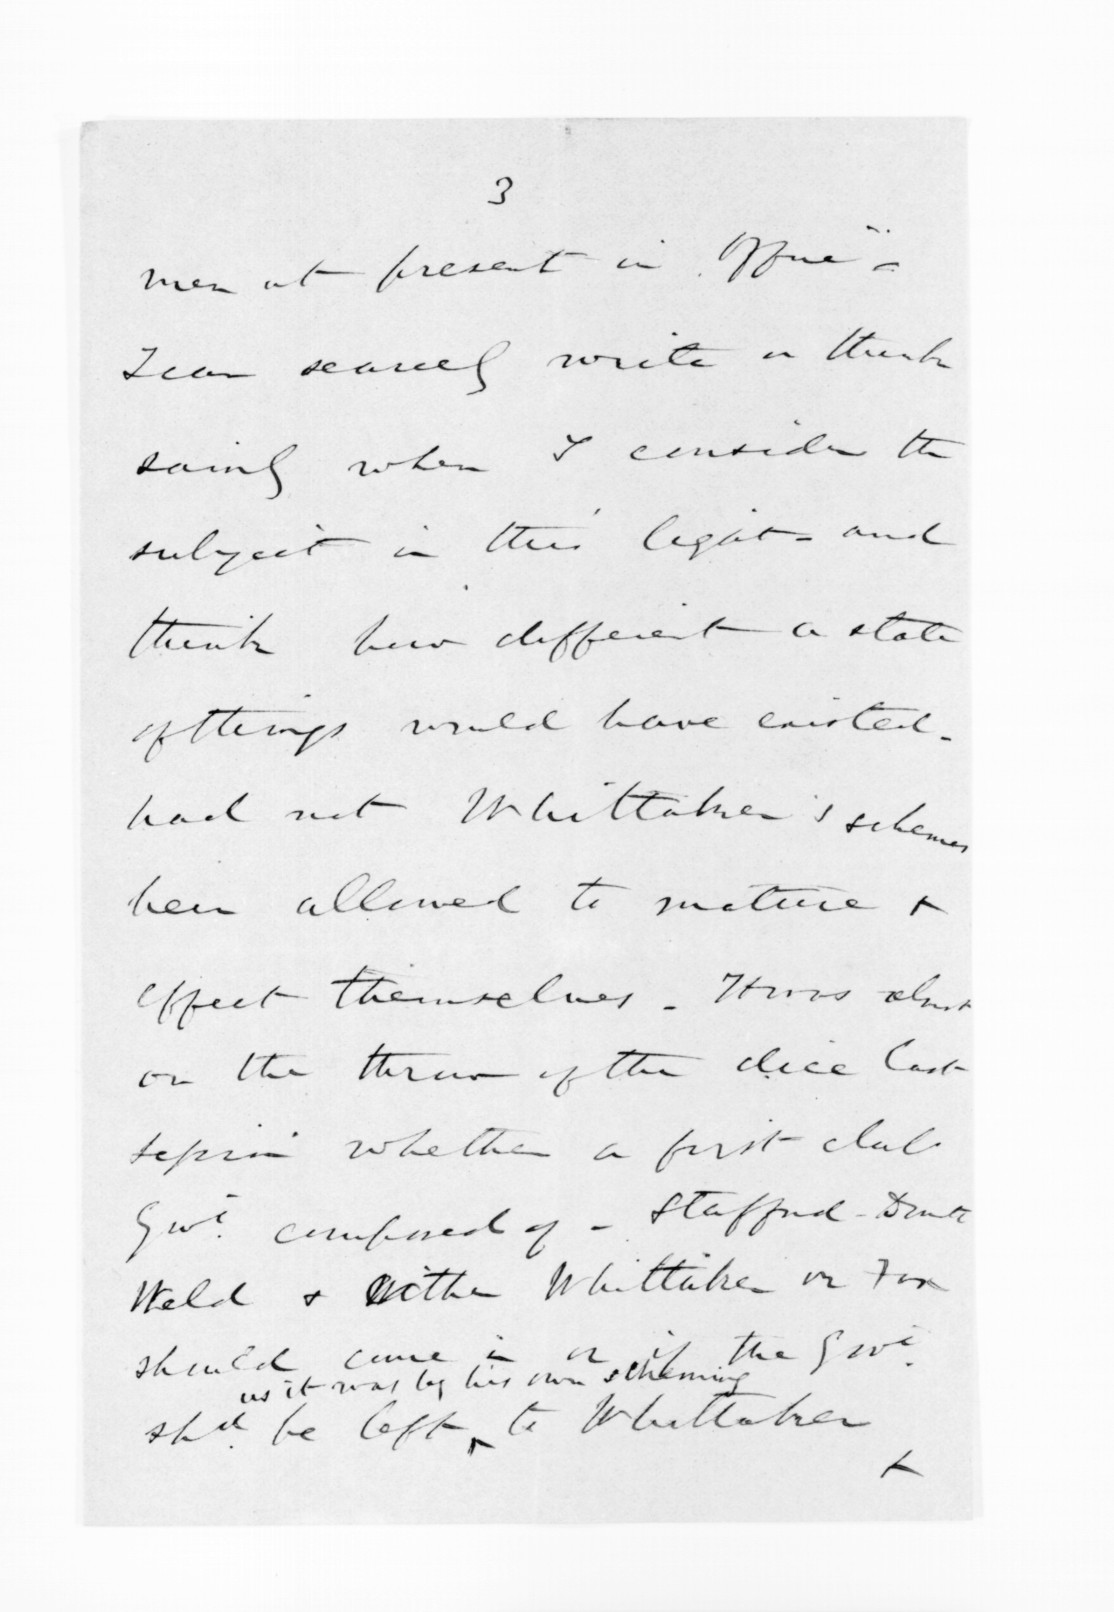 3
men at present in office" -
I can scarcely write or think
sainly when I consider the
subject in this light - and
think how different a state
of things would have existed -
had not Whittaker's schemes
been allowed to mature &
effect themselves - It was almost
on the throw of the dice last
session whether a first club
Govt. composed of - Stafford -
Weld & either Whittaker or Fox
should come in or if the Govt.
as it was by his own scheming
shd. be left to Whittaker
&